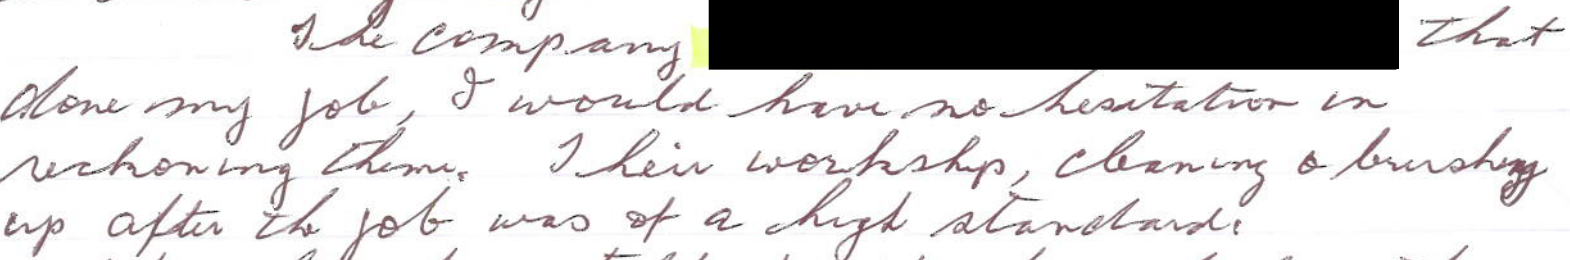 The company that
done my job, I would have no hesitation in
reckoning them. Their workship, cleaning & brushing
up after the job was of a high standard.